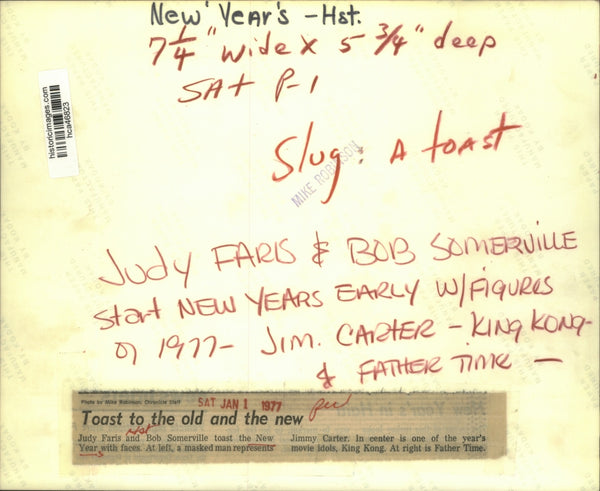 New Year's - Hst.
7 1/4" wide x 5 3/4" deep
SAt P-1
historicimages.com
hca46823
Slug: A toAst
MIKE ROBINSON
Judy FARIS & BOB SOMERVILLE
start NEW YEARS EARLY W/FIGURES
of 1977- JIM. CARTER - KING KONG-
& FATHER TIME -
Photo by Mike Robinson, Chronicle Staff
SAT JAN 1 1977
Toast to the old and the new
Hst
Judy Faris and Bob Somerville toast the New
Year with faces. At left, a masked man represents
Jimmy Carter. In center is one of the year's
movie idols, King Kong. At right is Father Time.